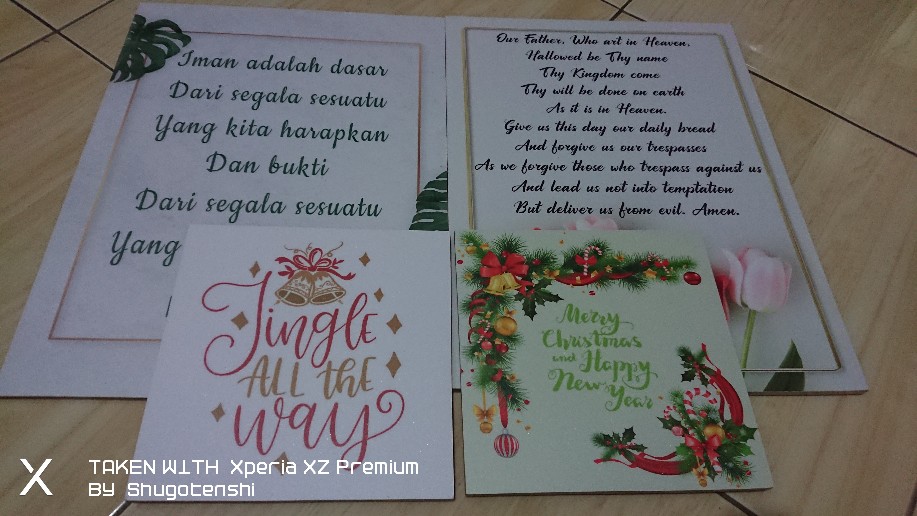 Iman adalah dasar
Dari segala sesuatu
Yang kita harapkan
Dan bukti
Dari segala sesuatu
Yang
Our Father, Who art in Heaven,
Hallowed be Thy name
Thy Kingdom come
Thy will be done on earth
As it is in Heaven.
Give us this day our daily bread
And forgive us our trespasses
As we forgive those who trespass against us
And lead us not into temptation
But deliver us from evil. Amen.
Jingle
ALL the
way
Merry
Christmas
and Happy
New
Year
X TAKEN WITH Xperia XZ Premium
BY Shugotenshi